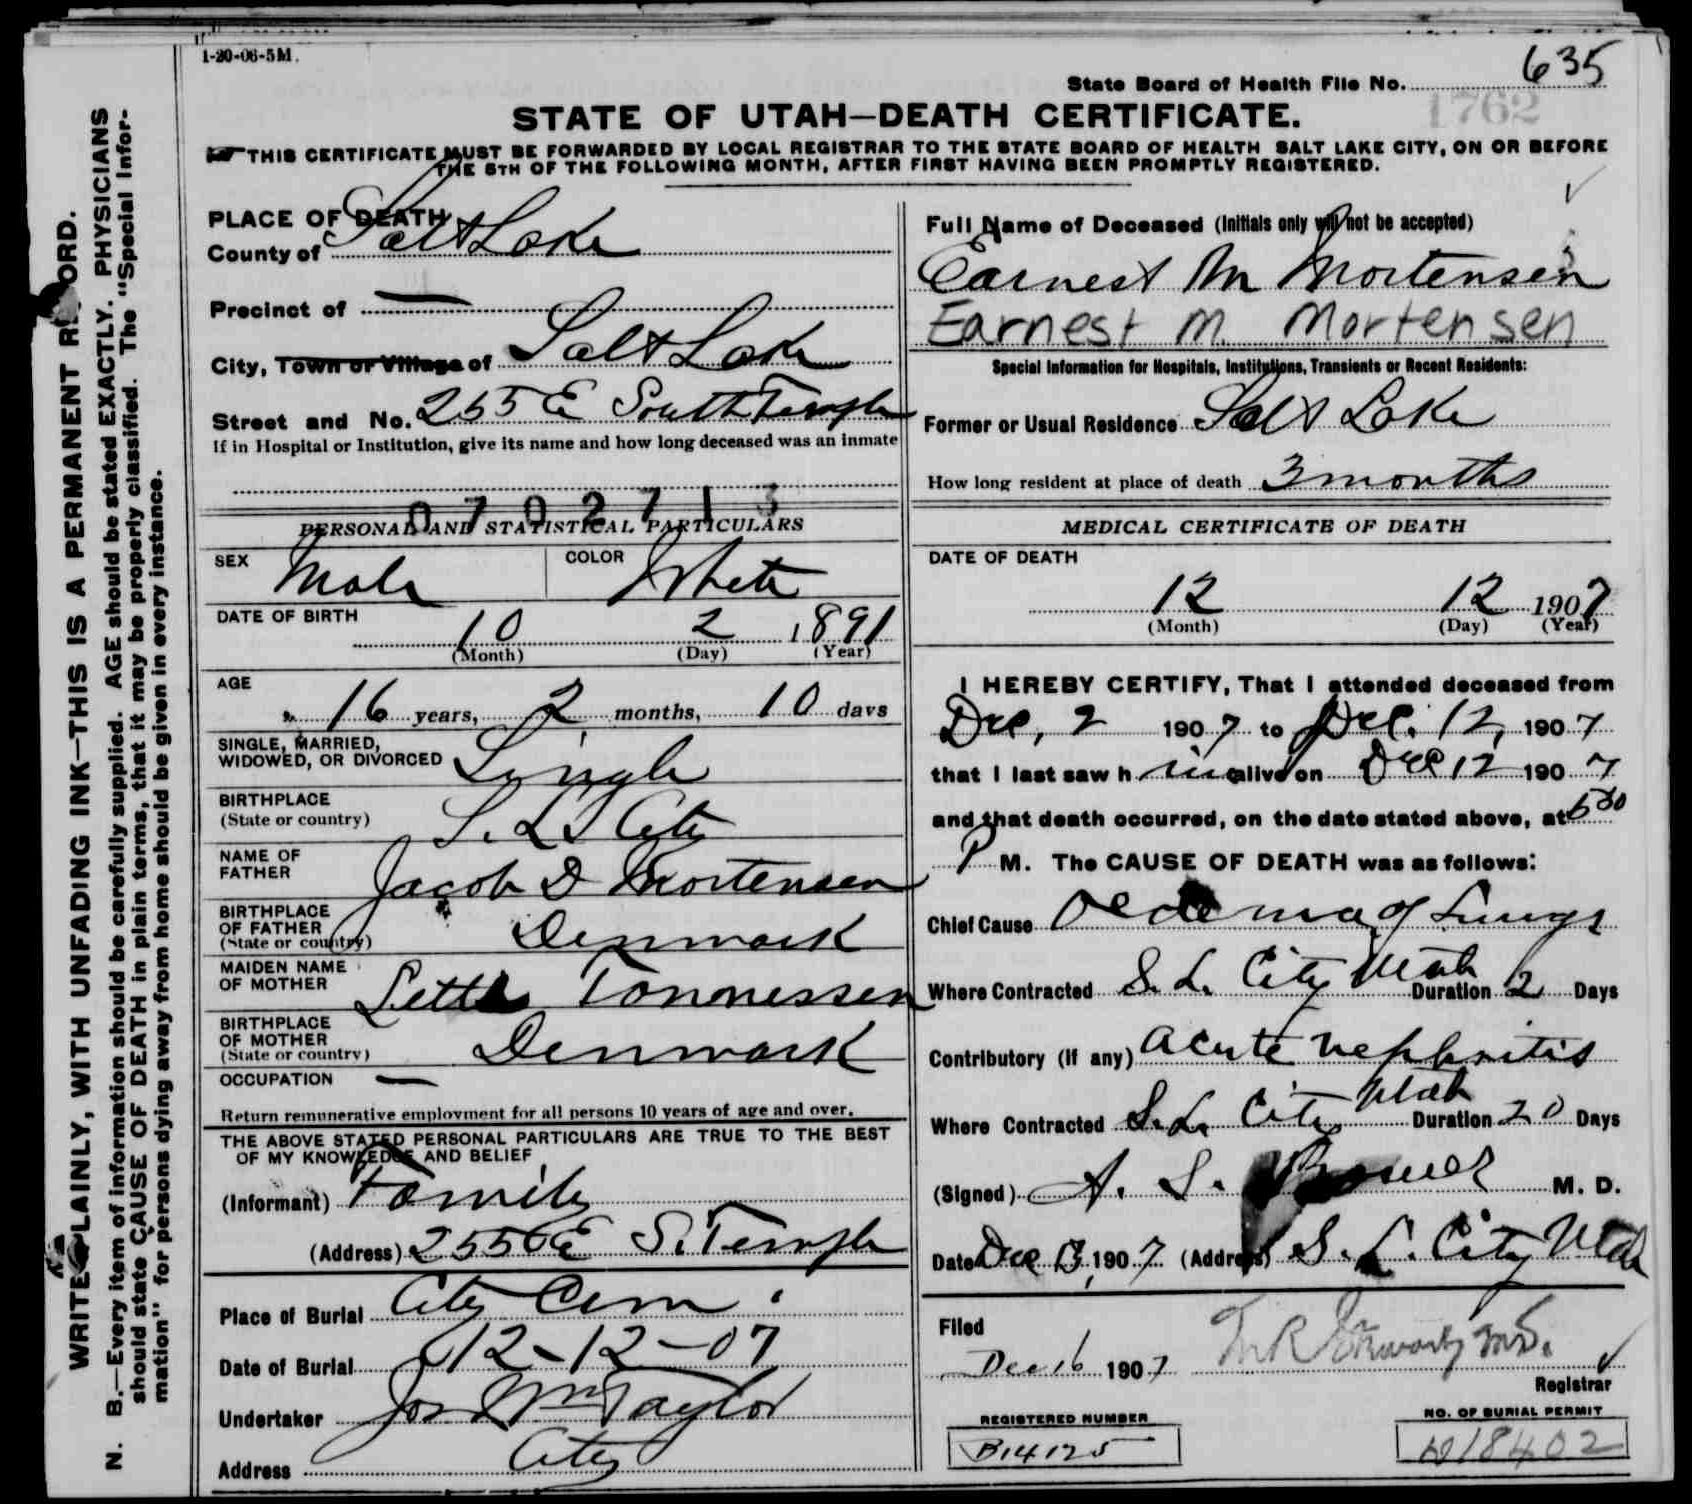 1-20-06-5M.
State Board of Health File No. 635
1762
STATE OF UTAH—DEATH CERTIFICATE.
THIS CERTIFICATE MUST BE FORWARDED BY LOCAL REGISTRAR TO THE STATE BOARD OF HEALTH SALT LAKE CITY, ON OR BEFORE
THE 5TH OF THE FOLLOWING MONTH, AFTER FIRST HAVING BEEN PROMPTLY REGISTERED.
WRITE PLAINLY, WITH UNFADING INK—THIS IS A PERMANENT RECORD.
N. B.—Every item of information should be carefully supplied. AGE should be stated EXACTLY. PHYSICIANS
should state CAUSE OF DEATH in plain terms, that it may be properly classified. The "Special Infor-
mation" for persons dying away from home should be given in every instance.
PLACE OF DEATH
County of Salt Lake
Precinct of —
City, Town or Village of Salt Lake
Street and No. 255 E South Temple
If in Hospital or Institution, give its name and how long deceased was an inmate
0702713
PERSONAL AND STATISTICAL PARTICULARS
SEX Male COLOR White
DATE OF BIRTH
10 2 1891
(Month) (Day) (Year)
AGE
16 years, 2 months, 10 days
SINGLE, MARRIED,
WIDOWED, OR DIVORCED Single
BIRTHPLACE
(State or country) S. L. City
NAME OF
FATHER Jacob D Mortensen
BIRTHPLACE
OF FATHER
(State or country) Denmark
MAIDEN NAME
OF MOTHER Tonnessen
BIRTHPLACE
OF MOTHER
(State or country) Denmark
OCCUPATION —
Return remunerative employment for all persons 10 years of age and over.
THE ABOVE STATED PERSONAL PARTICULARS ARE TRUE TO THE BEST
OF MY KNOWLEDGE AND BELIEF
(Informant) Family
(Address) 255 E S. Temple
Place of Burial City Cem.
Date of Burial 12-12-07
Undertaker Jos Wm Taylor
Address City
Full Name of Deceased (Initials only will not be accepted)
Earnest M Mortensen
Earnest M. Mortensen
Special Information for Hospitals, Institutions, Transients or Recent Residents:
Former or Usual Residence Salt Lake
How long resident at place of death 3 months
MEDICAL CERTIFICATE OF DEATH
DATE OF DEATH
12 12 1907
(Month) (Day) (Year)
I HEREBY CERTIFY, That I attended deceased from
Dec, 2 1907 to Dec. 12, 1907
that I last saw him alive on Dec 12 1907
and that death occurred, on the date stated above, at
P M. The CAUSE OF DEATH was as follows:
Chief Cause Oedema of Lungs
Where Contracted S. L. City Utah Duration 2 Days
Contributory (if any) Acute Nephritis
Where Contracted S. L. City Utah Duration 20 Days
(Signed) A. S. M. D.
Date Dec 13, 1907 (Address) S. L. City Utah
Filed
Dec 16 1907
Registrar
REGISTERED NUMBER
B14125
NO. OF BURIAL PERMIT
18402